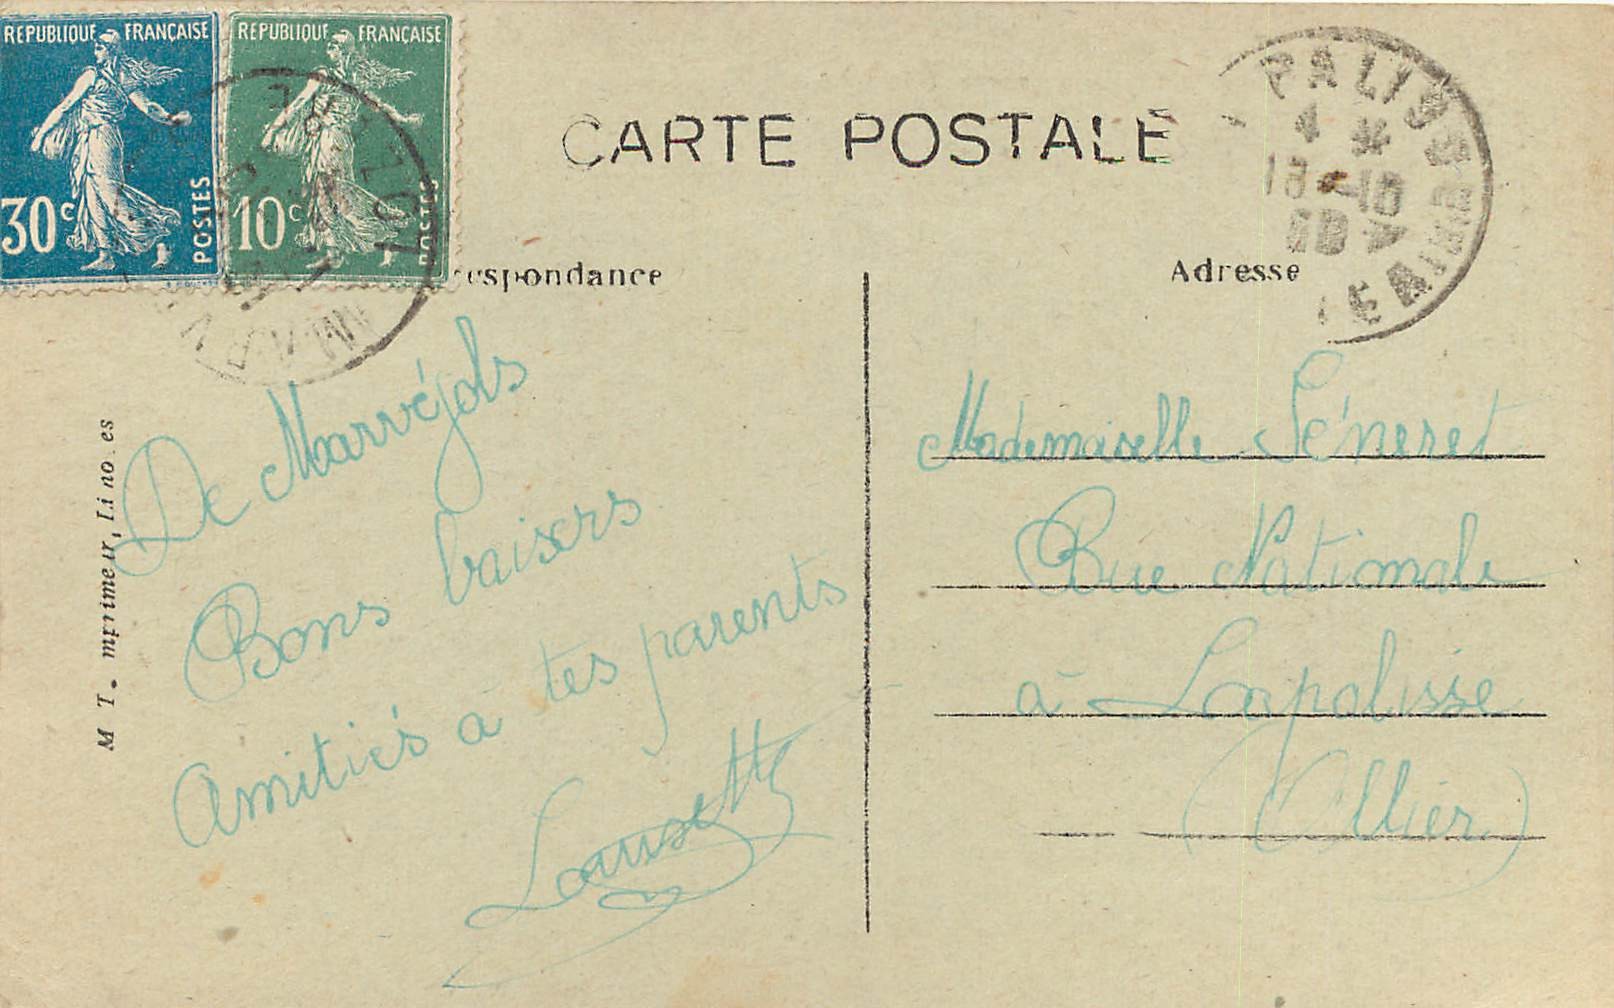 REPUBLIQUE FRANÇAISE
30c
POSTES
REPUBLIQUE FRANÇAISE
10c
POSTES
CARTE POSTALE
PALISSE
4 *
13 -10
spondance
Adresse
De Marvéjols
Bons baisers
Amitiés à tes parents
M T.
Mademoiselle Séneret
Rue Nationale
à Lapalisse
(Allier)